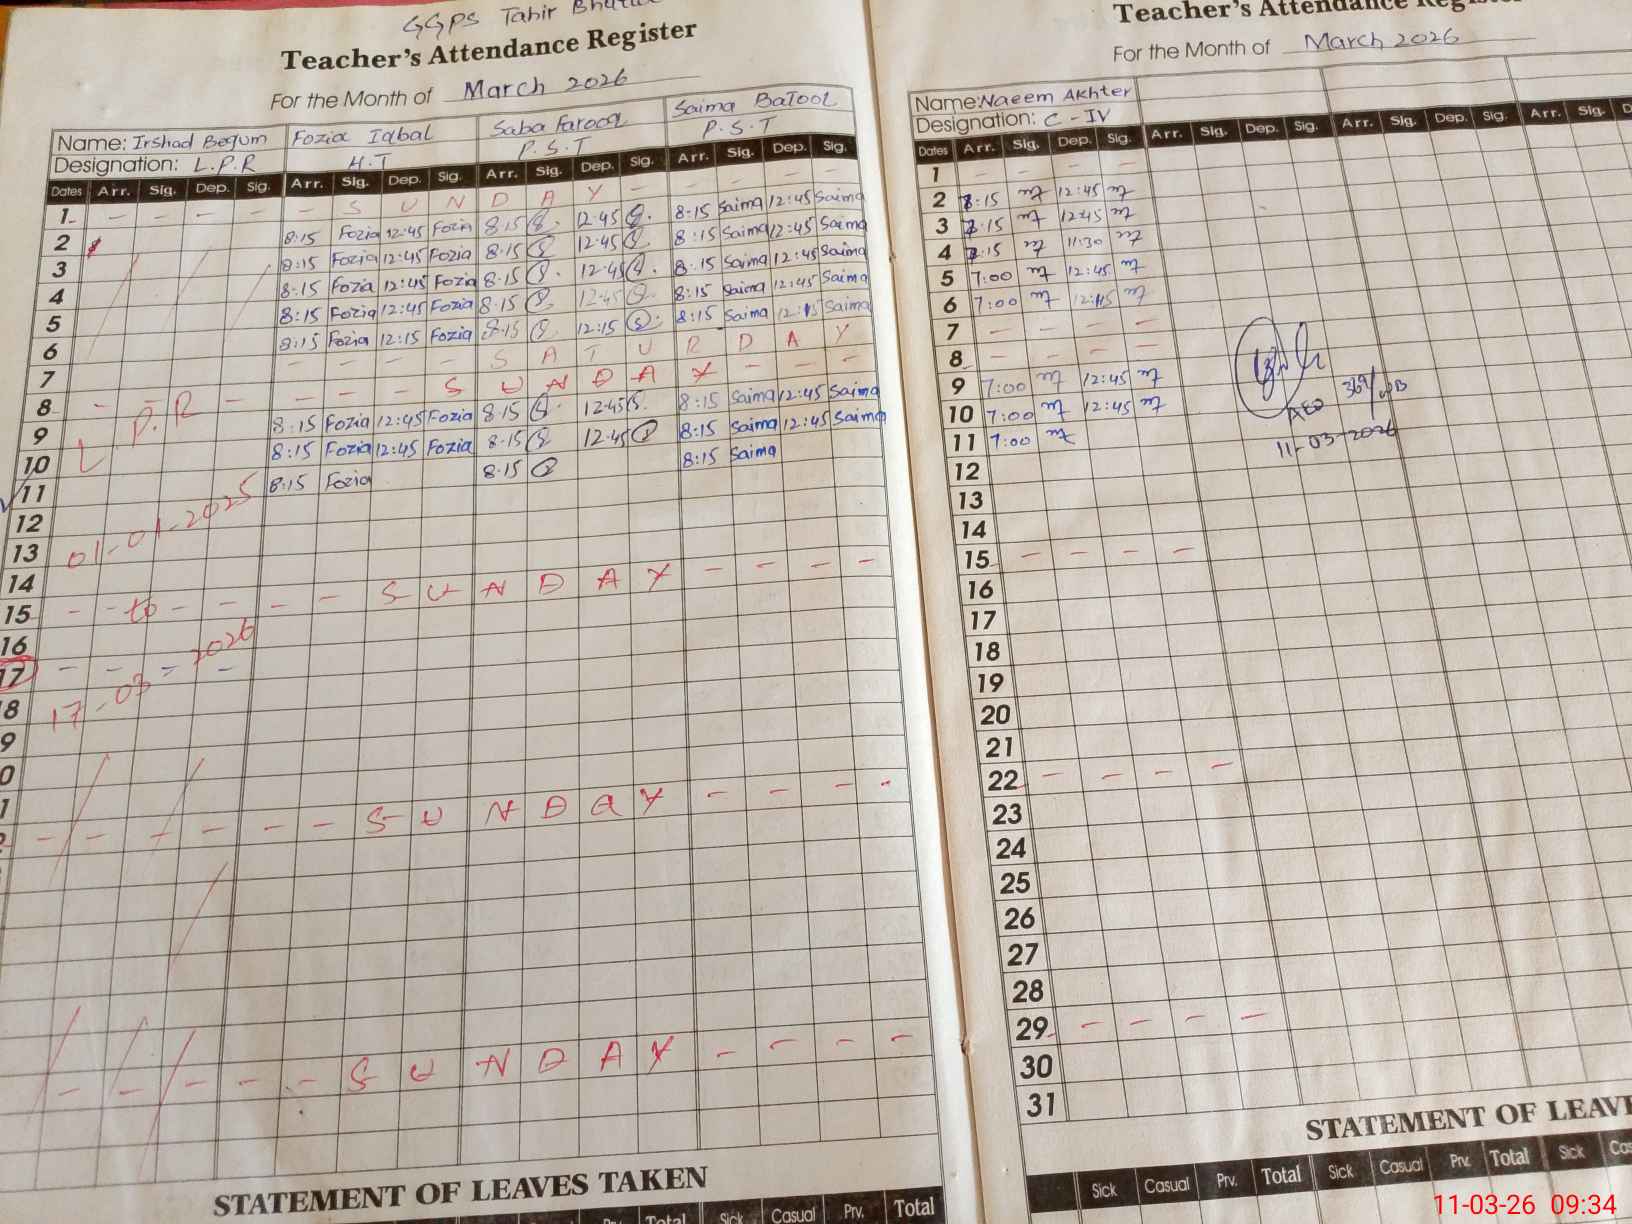 GGPS Tahir
Teacher's Attendance Register
For the Month of March 2026
Name: Irshad Begum Fozia Iqbal Saba Farooq Saima Batool
Designation: L.P.R H.T P.S.T P.S.T
Dates Arr. Sig. Dep. Sig. Arr. Sig. Dep. Sig. Arr. Sig. Dep. Sig. Arr. Sig. Dep. Sig.
1 - - - - - S U N D A Y - - - - -
2 8:15 Fozia 12:45 Fozia 8:15 12:45 8:15 Saima 12:45 Saima
3 8:15 Fozia 12:45 Fozia 8:15 12:45 8:15 Saima 12:45 Saima
4 8:15 Fozia 12:45 Fozia 8:15 12:45 8:15 Saima 12:45 Saima
5 8:15 Fozia 12:45 Fozia 8:15 12:45 8:15 Saima 12:45 Saima
6 8:15 Fozia 12:15 Fozia 8:15 12:15 8:15 Saima 12:15 Saima
7 - - - S A T U R D A Y
8 - - - - - - S U N D A Y - - -
9 8:15 Fozia 12:45 Fozia 8:15 12:45 8:15 Saima 12:45 Saima
10 8:15 Fozia 12:45 Fozia 8:15 12:45 8:15 Saima 12:45 Saima
11 8:15 Fozia 8:15 8:15 Saima
L.P.R
12
13
01-01-2025
14
15 - - to - - - - S U N D A Y - - - -
16
17 - - - -
17-03-2026
8
9
0
1
- - - - - - S U N D a Y - - - -
- - - - - S U N D A Y - - - -
STATEMENT OF LEAVES TAKEN
Total Sick Casual Prv. Total
Teacher's Attendance
For the Month of March 2026
Name: Naeem Akhter
Designation: C-IV
Dates Arr. Sig. Dep. Sig. Arr. Sig. Dep. Sig. Arr. Sig. Dep. Sig. Arr. Sig.
1 - - - -
2 8:15 12:45
3 8:15 12:45
4 8:15 11:30
5 7:00 12:45
6 7:00 12:45
7 - - - -
8 - - - -
9 7:00 12:45
10 7:00 12:45
11 7:00
AEO
11-03-2026
12
13
14
15 - - - -
16
17
18
19
20
21
22 - - - -
23
24
25
26
27
28
29 - - - -
30
31
STATEMENT OF
Sick Casual Prv. Total Sick Casual Prv. Total Sick
11-03-26 09:34